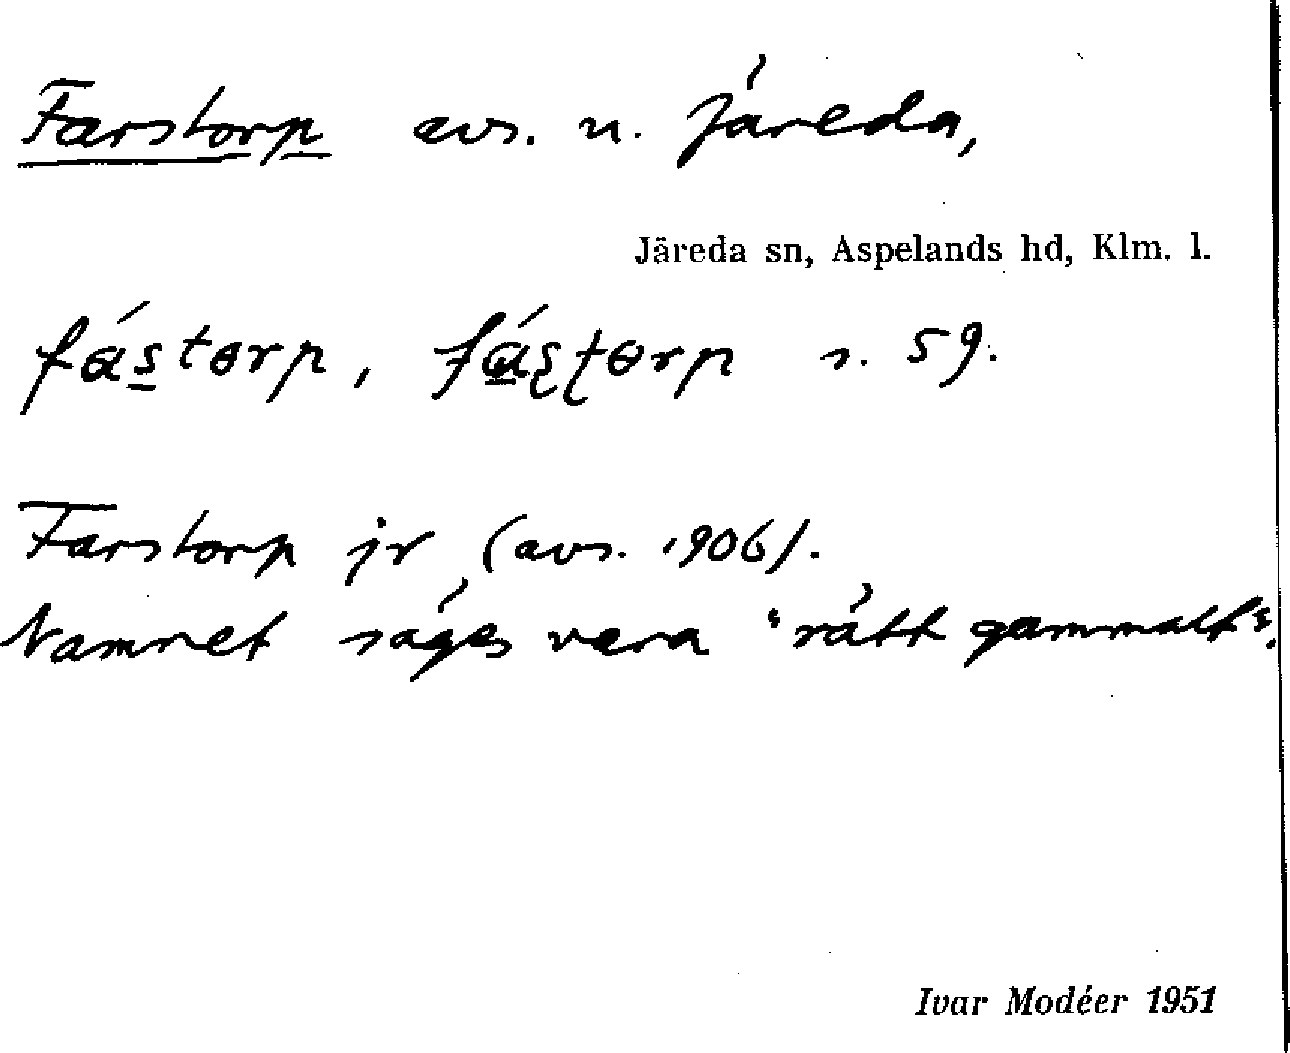 Farstorp avs. u. Järeda,
Järeda sn, Aspelands hd, Klm. l.
fás̲tɵrp, fá̲ʂʈɵrp s. 59.
Farstorp jr (avs. 1906).
Namnet säges vara "rätt gammalt".
Ivar Modéer 1951